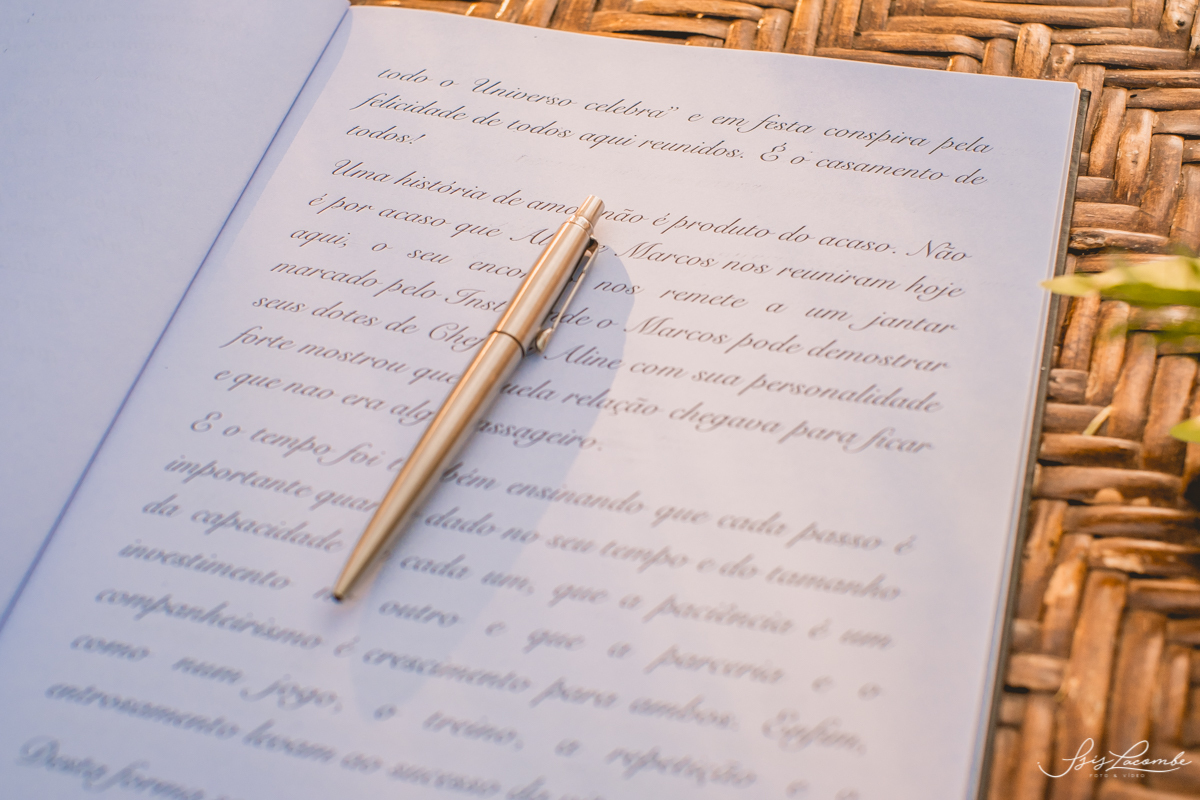 todo o Universo celebra" e em festa conspira pela
felicidade de todos aqui reunidos. É o casamento de
todos!
Uma história de amor não é produto do acaso. Não
é por acaso que Marcos nos reuniram hoje
aqui, o seu nos remete a um jantar
marcado pelo o Marcos pode demostrar
seus dotes de Aline com sua personalidade
forte mostrou que relação chegava para ficar
e que nao era
E o tempo foi ensinando que cada passo é
importante dado no seu tempo e do tamanho
da capacidade cada um, que a paciência é um
investimento outro e que a parceria e o
companheirismo é crescimento para ambos. Enfim,
como num jogo, o treino, a repetição e o
entrosamento levam ao sucesso
Desta forma
Isis Lacombe
FOTO & VÍDEO